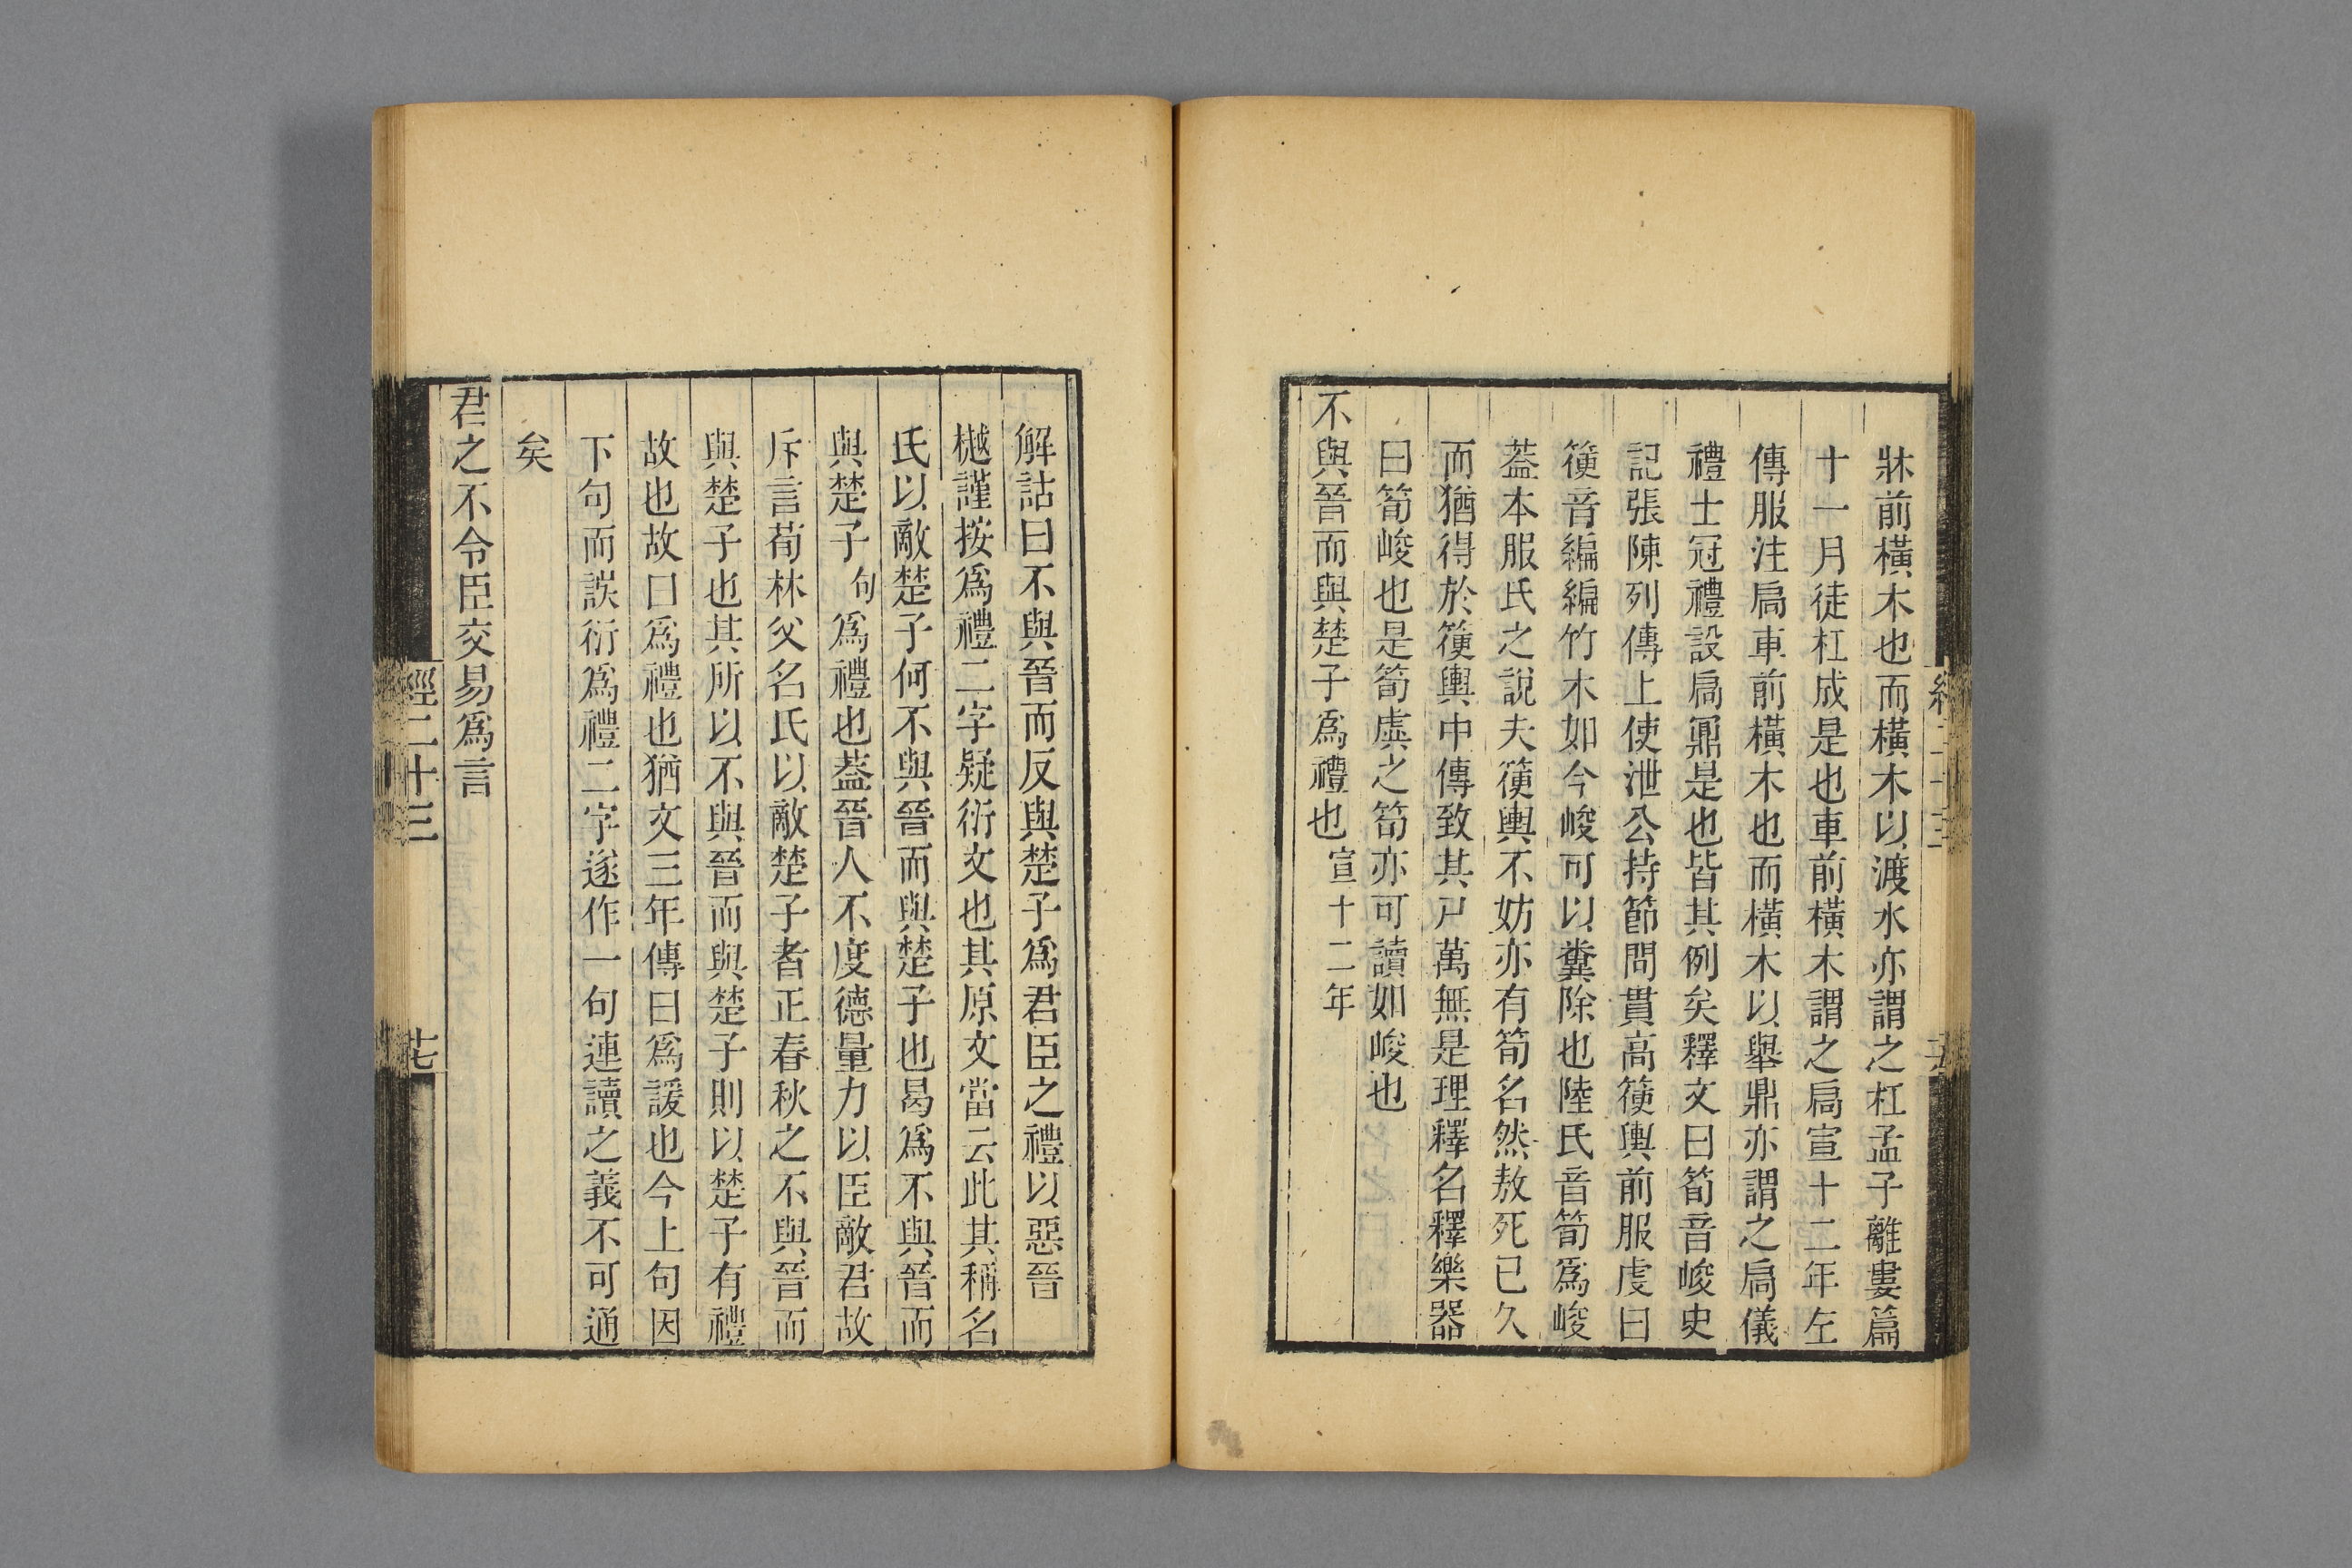 牀前橫木也而橫木以渡水亦謂之杠孟子離婁篇
十一月徒杠成是也車前橫木謂之扃宣十二年左
傳服注扃車前橫木也而橫木以舉鼎亦謂之扃儀
禮士冠禮設扃鼏是也皆其例矣釋文曰筍音峻史
記張陳列傳上使泄公持節問貫高箯輿前服虔曰
箯音編編竹木如今峻可以糞除也陸氏音筍爲峻
葢本服氏之說夫箯輿不妨亦有筍名然敖死已久
而猶得於箯輿中傳致其尸萬無是理釋名釋樂器
曰筍峻也是筍虡之筍亦可讀如峻也
不與晉而與楚子爲禮也宣十二年
解詁曰不與晉而反與楚子爲君臣之禮以惡晉
樾謹按爲禮二字疑衍文也其原文當云此其稱名
氏以敵楚子何不與晉而與楚子也曷爲不與晉而
與楚子句爲禮也葢晉人不度德量力以臣敵君故
斥言荀林父名氏以敵楚子者正春秋之不與晉而
與楚子也其所以不與晉而與楚子則以楚子有禮
故也故曰爲禮也猶文三年傳曰爲諼也今上句因
下句而誤衍爲禮二字遂作一句連讀之義不可通
矣
君之不令臣交易爲言
經二十三
七